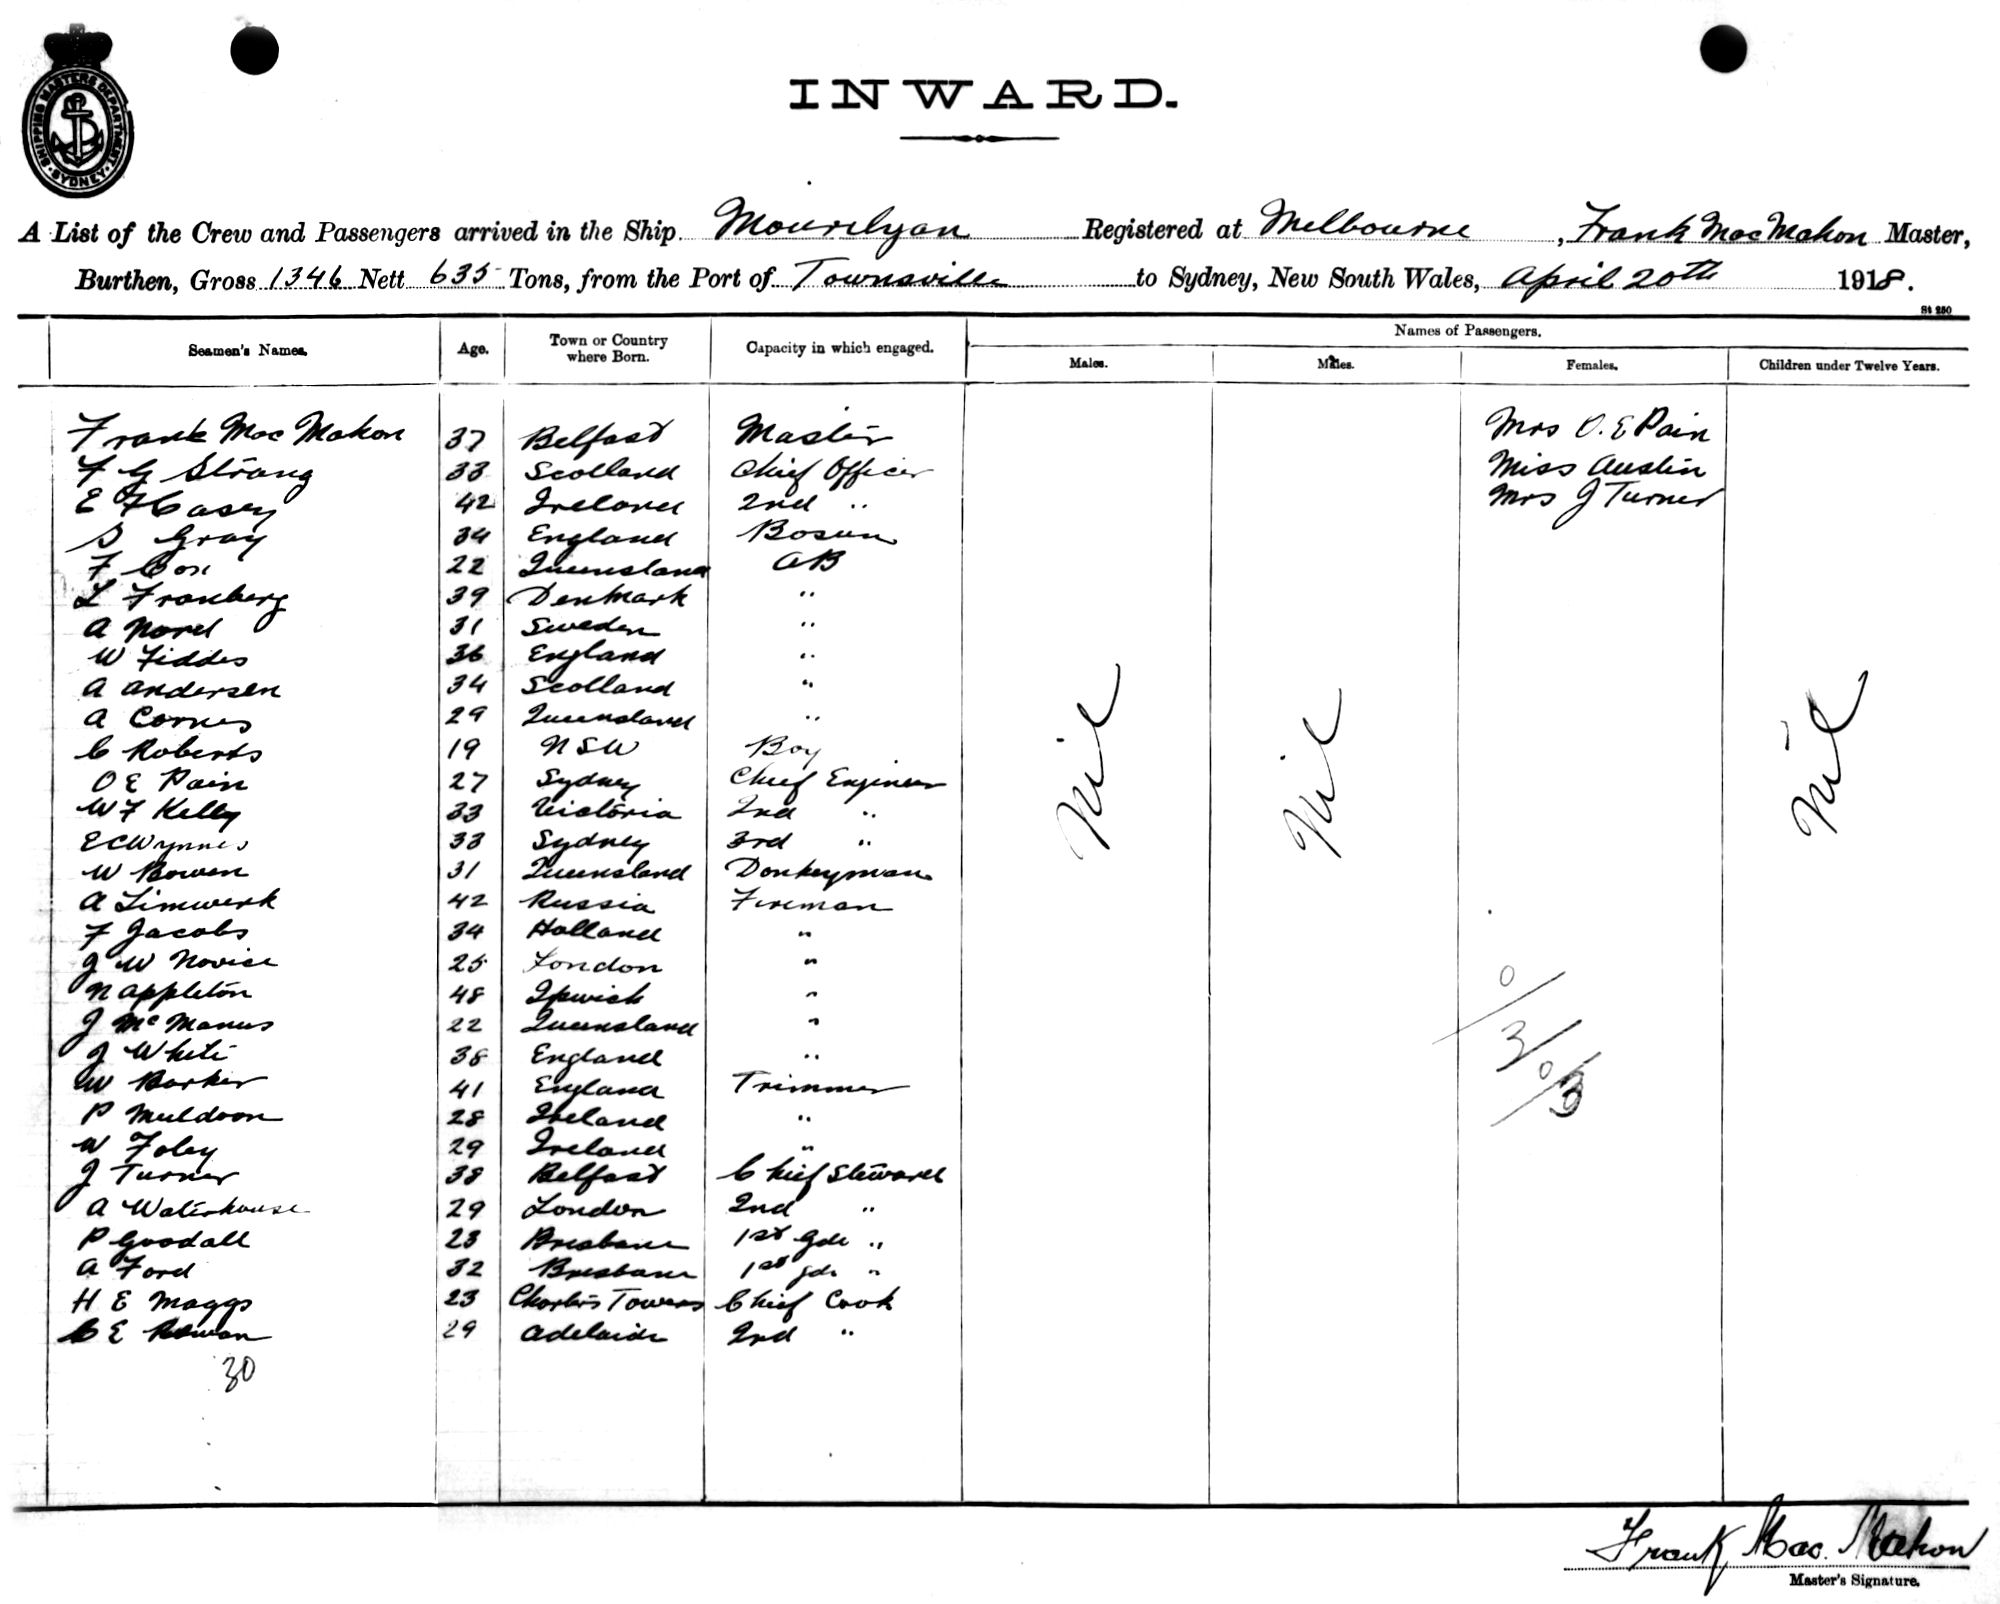 SHIPPING MASTERS DEPARTMENT
SYDNEY
INWARD.
A List of the Crew and Passengers arrived in the Ship Mourilyan Registered at Melbourne, Frank MacMahon Master,
Burthen, Gross 1346 Nett 635 Tons, from the Port of Townsville to Sydney, New South Wales, April 20th 1918.
St 250
Names of Passengers.
Seamen's Names. Age. Town or Country where Born. Capacity in which engaged. Males. Males. Females. Children under Twelve Years.
Frank Mac Mahon 37 Belfast Master Mrs O. E Pain
F G Strang 33 Scotland Chief Officer Miss Austin
E H Casey 42 Ireland 2nd " Mrs J Turner
S Gray 34 England Bosun
F Cox 22 Queensland AB
L Franberg 39 Denmark "
A Nord 31 Sweden "
W Fiddes 36 England "
A Andersen 34 Scotland "
A Cornes 29 Queensland "
C Roberts 19 NSW Boy
O E Pain 27 Sydney Chief Engineer
W F Kelly 33 Victoria 2nd "
E C Wynnes 33 Sydney 3rd "
W Bowen 31 Queensland Donkeyman
A Limwerk 42 Russia Fireman
F Jacobs 34 Holland "
J W Novice 25 London "
N Appleton 48 Ipwich "
J McManus 22 Queensland "
J White 38 England "
W Barker 41 England Trimmer
P Muldoon 28 Ireland "
W Foley 29 Ireland "
J Turner 38 Belfast Chief Steward
A Waterhouse 29 London 2nd "
P Goodall 23 Brisbane 1st Gde "
A Ford 32 Brisbane 1st gde "
H E Maggs 23 Charters Towers Chief Cook
C E Rowan 29 Adelaide 2nd "
30
Nil
Nil
Nil
0/3/0/3
Frank Mac. Mahon
Master's Signature.